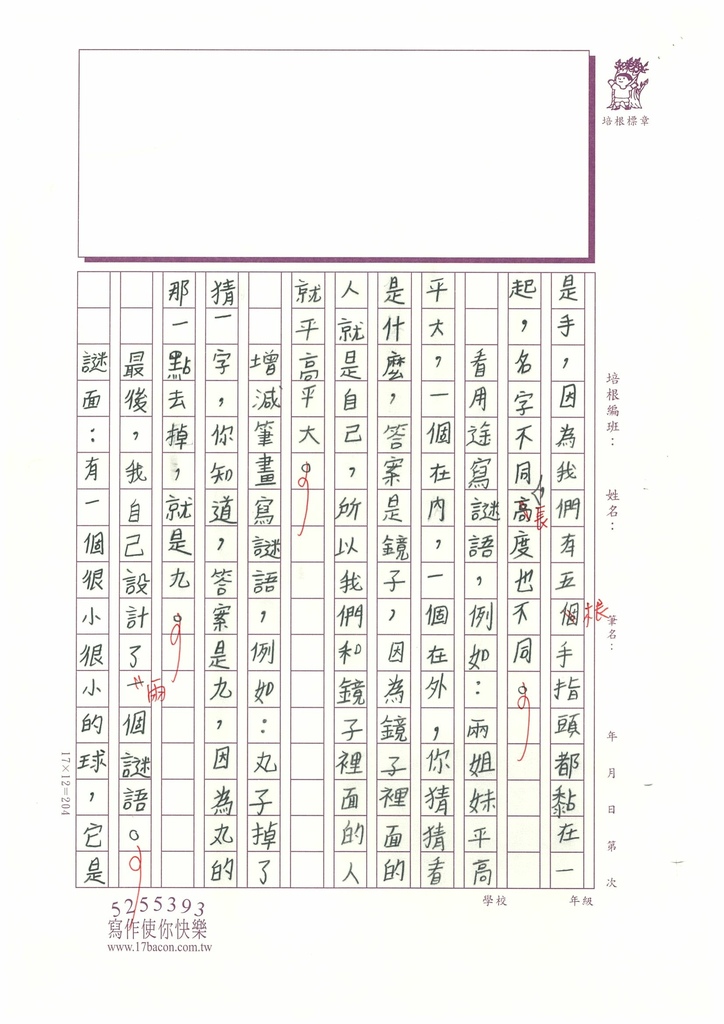 培根標章
培根編班：　姓名：　筆名：　年　月　日　第　次
學校　年級
是手，因為我們有五個手指頭都黏在一
根
起，名字不同高度也不同。
長
看用途寫謎語，例如：兩姐妹平高
平大，一個在內，一個在外，你猜猜看
是什麼，答案是鏡子，因為鏡子裡面的
人就是自己，所以我們和鏡子裡面的人
就平高平大。
增減筆畫寫謎語，例如：丸子掉了
猜一字，你知道，答案是九，因為丸的
那一點去掉，就是九。
最後，我自己設計了二個謎語。
兩
謎面：有一個很小很小的球，它是
17×12=204
5255393
寫作使你快樂
www.17bacon.com.tw